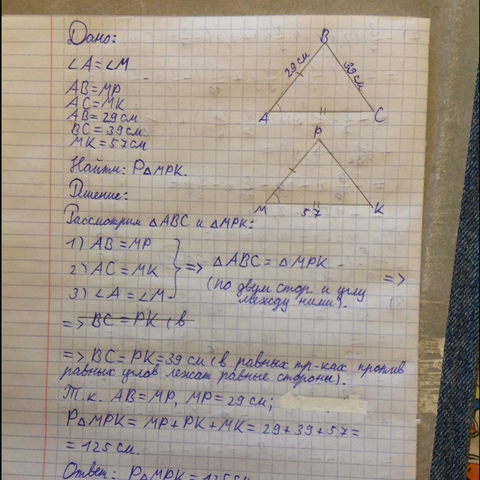 Дано:
∠A=∠M
AB=MP
AC=MK
AB=29см
BC=39см
MK=57см
Найти: P△MPK.
Решение:
Рассмотрим △ABC и △MPK:
1) AB=MP
2) AC=MK
3) ∠A=∠M
=> △ABC=△MPK
(по двум стор. и углу
между ними).
=>
=> BC=PK (в
=> BC=PK=39см (в равных тр-ках против
равных углов лежат равные стороны).
Т.к. AB=MP, MP=29см;
P△MPK=MP+PK+MK=29+39+57=
=125см.
Ответ: P△MPK=125см
B
29см
39см
A
C
P
M
57
K